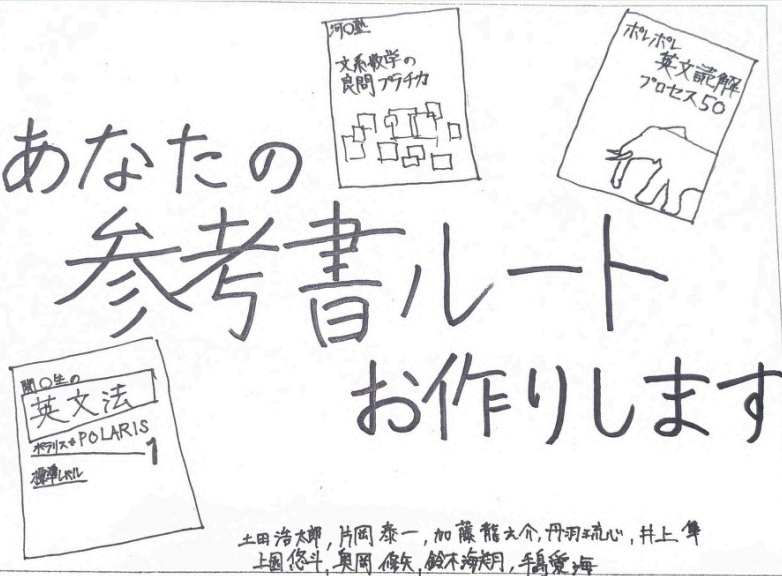 河〇塾
文系数学の
良問プラチカ
ポレポレ
英文読解
プロセス50
あなたの
参考書ルート
お作りします
関〇生の
英文法
ポラリス POLARIS
1
標準レベル
土田 浩太郎, 片岡 泰一, 加藤 龍之介, 丹羽 琉心, 井上 隼
上園 悠斗, 奥岡 脩矢, 鈴木 海翔, 手島 愛海